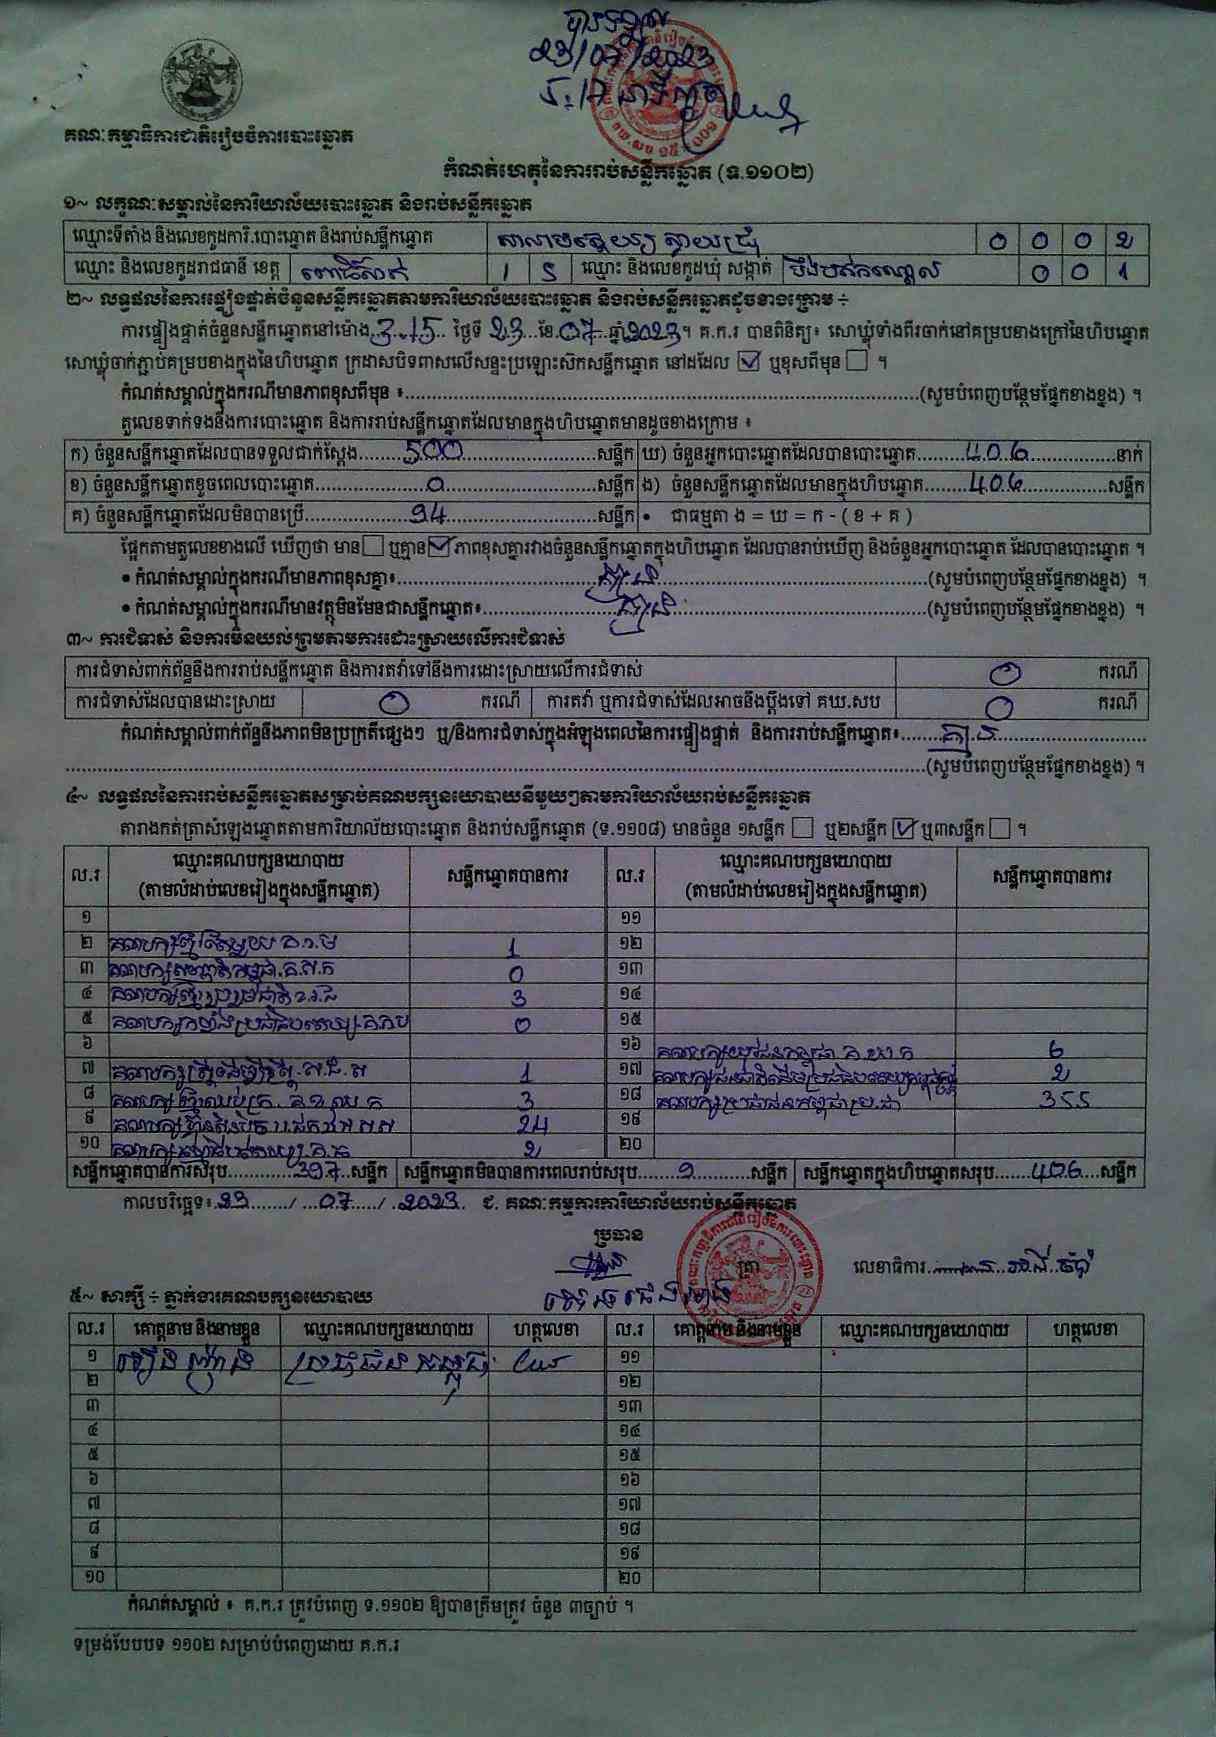 23/07/2023
គណៈកម្មាធិការជាតិរៀបចំការបោះឆ្នោត
កំណត់ហេតុនៃការរាប់សន្លឹកឆ្នោត (ទ.១១០២)
១~ លក្ខណៈសម្គាល់នៃការិយាល័យបោះឆ្នោត និងរាប់សន្លឹកឆ្នោត
ឈ្មោះទីតាំង និងលេខកូដការិ.បោះឆ្នោត និងរាប់សន្លឹកឆ្នោត 0 0 0 2
ឈ្មោះ និងលេខកូដរាជធានី ខេត្ត ពោធិ៍សាត់ 1 5 ឈ្មោះ និងលេខកូដឃុំ សង្កាត់ បឹងបត់កណ្ដោល 0 0 1
២~ លទ្ធផលនៃការផ្ទៀងផ្ទាត់ចំនួនសន្លឹកឆ្នោតតាមការិយាល័យបោះឆ្នោត និងរាប់សន្លឹកឆ្នោតដូចខាងក្រោម ÷
ការផ្ទៀងផ្ទាត់ចំនួនសន្លឹកឆ្នោតនៅម៉ោង 3:15 ថ្ងៃទី 23 ខែ 07 ឆ្នាំ 2023។ គ.ក.រ បានពិនិត្យ៖ សោឃ្លុំទាំងពីរចាក់នៅគម្របខាងក្រៅនៃហិបឆ្នោត
សោឃ្លុំចាក់ភ្ជាប់គម្របខាងក្នុងនៃហិបឆ្នោត ក្រដាសបិទពាសលើសន្ទះប្រឡោះស៊កសន្លឹកឆ្នោត នៅដដែល ☑ ឬខុសពីមុន ☐ ។
កំណត់សម្គាល់ក្នុងករណីមានភាពខុសពីមុន ៖ (សូមបំពេញបន្ថែមផ្នែកខាងខ្នង) ។
តួលេខទាក់ទងនឹងការបោះឆ្នោត និងការរាប់សន្លឹកឆ្នោតដែលមានក្នុងហិបឆ្នោតមានដូចខាងក្រោម ៖
ក) ចំនួនសន្លឹកឆ្នោតដែលបានទទួលជាក់ស្ដែង 500 សន្លឹក ឃ) ចំនួនអ្នកបោះឆ្នោតដែលបានបោះឆ្នោត 406 នាក់
ខ) ចំនួនសន្លឹកឆ្នោតខូចពេលបោះឆ្នោត 0 សន្លឹក ង) ចំនួនសន្លឹកឆ្នោតដែលមានក្នុងហិបឆ្នោត 406 សន្លឹក
គ) ចំនួនសន្លឹកឆ្នោតដែលមិនបានប្រើ 94 សន្លឹក • ជាធម្មតា ង = ឃ = ក - ( ខ + គ )
ផ្អែកតាមតួលេខខាងលើ ឃើញថា មាន ☐ ឬគ្មាន ☑ ភាពខុសគ្នារវាងចំនួនសន្លឹកឆ្នោតក្នុងហិបឆ្នោត ដែលបានរាប់ឃើញ និងចំនួនអ្នកបោះឆ្នោត ដែលបានបោះឆ្នោត ។
• កំណត់សម្គាល់ក្នុងករណីមានភាពខុសគ្នា៖ គ្មាន (សូមបំពេញបន្ថែមផ្នែកខាងខ្នង) ។
• កំណត់សម្គាល់ក្នុងករណីមានវត្ថុមិនមែនជាសន្លឹកឆ្នោត៖ គ្មាន (សូមបំពេញបន្ថែមផ្នែកខាងខ្នង) ។
៣~ ការជំទាស់ និងការមិនយល់ព្រមតាមការដោះស្រាយលើការជំទាស់
ការជំទាស់ពាក់ព័ន្ធនឹងការរាប់សន្លឹកឆ្នោត និងការតវ៉ាទៅនឹងការដោះស្រាយលើការជំទាស់ 0 ករណី
ការជំទាស់ដែលបានដោះស្រាយ 0 ករណី ការតវ៉ា ឬការជំទាស់ដែលអាចនឹងប្ដឹងទៅ គឃ.សប 0 ករណី
កំណត់សម្គាល់ពាក់ព័ន្ធនឹងភាពមិនប្រក្រតីផ្សេងៗ ឬ/និងការជំទាស់ក្នុងអំឡុងពេលនៃការផ្ទៀងផ្ទាត់ និងការរាប់សន្លឹកឆ្នោត៖ គ្មាន
(សូមបំពេញបន្ថែមផ្នែកខាងខ្នង) ។
៤~ លទ្ធផលនៃការរាប់សន្លឹកឆ្នោតសម្រាប់គណបក្សនយោបាយនីមួយៗតាមការិយាល័យរាប់សន្លឹកឆ្នោត
តារាងកត់ត្រាសំឡេងឆ្នោតតាមការិយាល័យបោះឆ្នោត និងរាប់សន្លឹកឆ្នោត (ទ.១១០៨) មានចំនួន ១សន្លឹក ☐ ឬ២សន្លឹក ☑ ឬ៣សន្លឹក ☐ ។
ល.រ ឈ្មោះគណបក្សនយោបាយ (តាមលំដាប់លេខរៀងក្នុងសន្លឹកឆ្នោត) សន្លឹកឆ្នោតបានការ ល.រ ឈ្មោះគណបក្សនយោបាយ (តាមលំដាប់លេខរៀងក្នុងសន្លឹកឆ្នោត) សន្លឹកឆ្នោតបានការ
១ ១១
២ 1 ១២
៣ 0 ១៣
៤ 3 ១៤
៥ 0 ១៥
៦ ១៦ គណបក្សយុវជនកម្ពុជា គ.យ.ក 6
៧ 1 ១៧ 2
៨ 3 ១៨ គណបក្សប្រជាជនកម្ពុជា 355
៩ 24 ១៩
១០ 2 ២០
សន្លឹកឆ្នោតបានការសរុប 397 សន្លឹក សន្លឹកឆ្នោតមិនបានការពេលរាប់សរុប 9 សន្លឹក សន្លឹកឆ្នោតក្នុងហិបឆ្នោតសរុប 406 សន្លឹក
កាលបរិច្ឆេទ៖ 23 / 07 / 2023 ជ. គណៈកម្មការការិយាល័យរាប់សន្លឹកឆ្នោត
ប្រធាន
ត្រា លេខាធិការ
៥~ សាក្សី ÷ ភ្នាក់ងារគណបក្សនយោបាយ
ល.រ គោត្តនាម និងនាមខ្លួន ឈ្មោះគណបក្សនយោបាយ ហត្ថលេខា ល.រ គោត្តនាម និងនាមខ្លួន ឈ្មោះគណបក្សនយោបាយ ហត្ថលេខា
១ ប្រជាជនកម្ពុជា ១១
២ ១២
៣ ១៣
៤ ១៤
៥ ១៥
៦ ១៦
៧ ១៧
៨ ១៨
៩ ១៩
១០ ២០
កំណត់សម្គាល់ ៖ គ.ក.រ ត្រូវបំពេញ ទ.១១០២ ឱ្យបានត្រឹមត្រូវ ចំនួន ៣ច្បាប់ ។
ទម្រង់បែបបទ ១១០២ សម្រាប់បំពេញដោយ គ.ក.រ